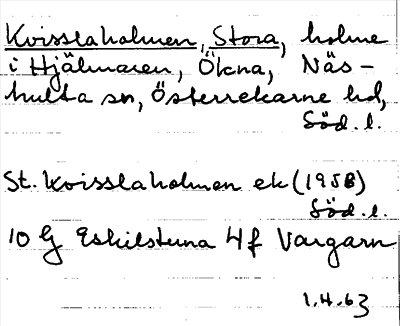 Kvisslaholmen, Stora, holme
i Hjälmaren, Ökna, Näs-
hulta sn, Österrekarne hd,
Söd. l.
St. Kvisslaholmen ek (1958)
Söd. l.
10 G Eskilstuna 4f Vargarn
1.4.63